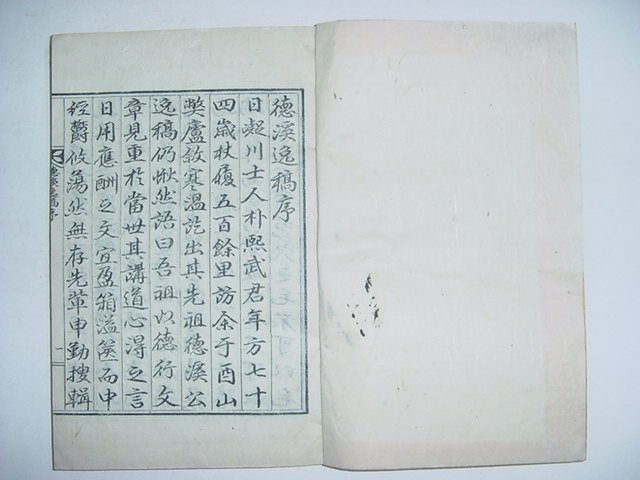 德溪逸稿序
日凝川士人朴熙武君年方七十
四歲杖屨五百餘里訪余于酉山
獘廬敘寒溫訖出其先祖德溪公
逸稿仍愀然語曰吾祖以德行文
章見重於當世其講道心得之言
日用應酬之文宜盈箱溢篋而中
經欝攸蕩然無存先輩申勤搜輯
德溪逸稿序
一